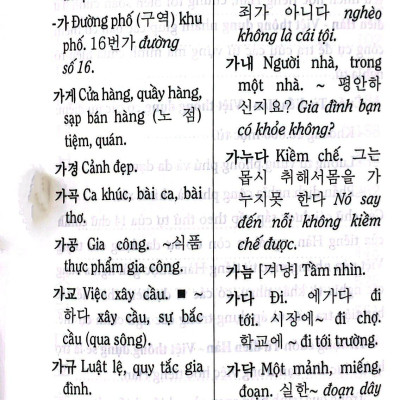 -가 Đường phố (구역) khu
phố. 16번가 đường
số 16.
가게 Cửa hàng, quầy hàng,
sạp bán hàng (노 점)
tiệm, quán.
가경 Cảnh đẹp.
가곡 Ca khúc, bài ca, bài
thơ.
가공 Gia công. ~식품
thực phẩm gia công.
가교 Việc xây cầu. ■ ~
하다 xây cầu, sự bắc
cầu (qua sông).
가규 Luật lệ, quy tắc gia
đình.
죄가 아니다 nghèo
không là cái tội.
가내 Người nhà, trong
một nhà. ~ 평안하
신지요? Gia đình bạn
có khỏe không?
가누다 Kiềm chế. 그는
몹시 취해서몸을 가
누지못 한다 Nó say
đến nỗi không kiềm
chế được.
가늠 [겨냥] Tầm nhìn.
가다 Đi. ~ 에가다 đi
tới. 시장에~ đi chợ.
학교에 ~ đi tới trường.
가닥 Một mảnh, miếng,
đoạn. 실한~ đoạn dây